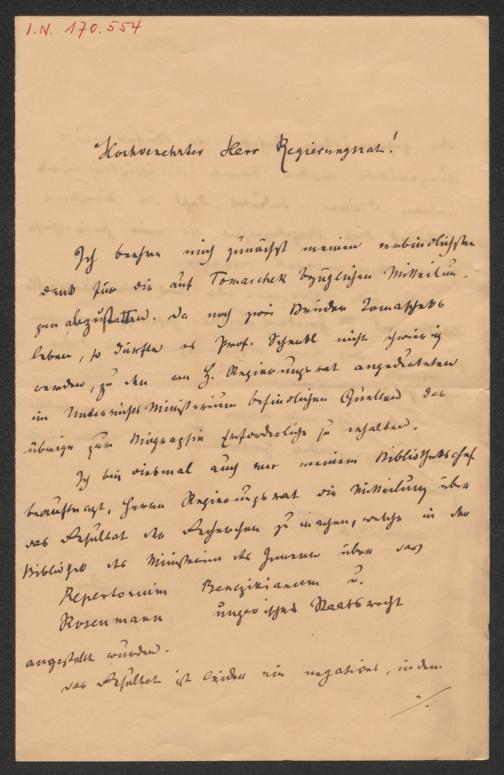 I.N. 170.554
Hochverehrter Herr Regierungsrat!
Ich beehre mich zunächst meinen verbindlichsten
Dank für die auf Tomaschek bezüglichen Mitteilun-
gen abzustatten. Da noch zwei Brüder Tomascheks
leben, so dürfte es Prof. Schenkl nicht schwierig
werden, zu den von H. Regierungsrat angedeuteten
im Unterrichts Ministerium befindlichen Quellen das
übrige zur Biographie Erforderliche zu erhalten.
Ich bin diesmal auch von meinem Bibliothekschef
beauftragt, Herrn Regierungsrat die Mitteilung über
das Resultat der Recherchen zu machen, welche in der
Bibliothek des Ministerium des Innern über das
Repertorium Benczikianum u.
Rosenmann ungarisches Staatsrecht
angestellt wurden.
Das Resultat ist leider ein negatives, indem
./.